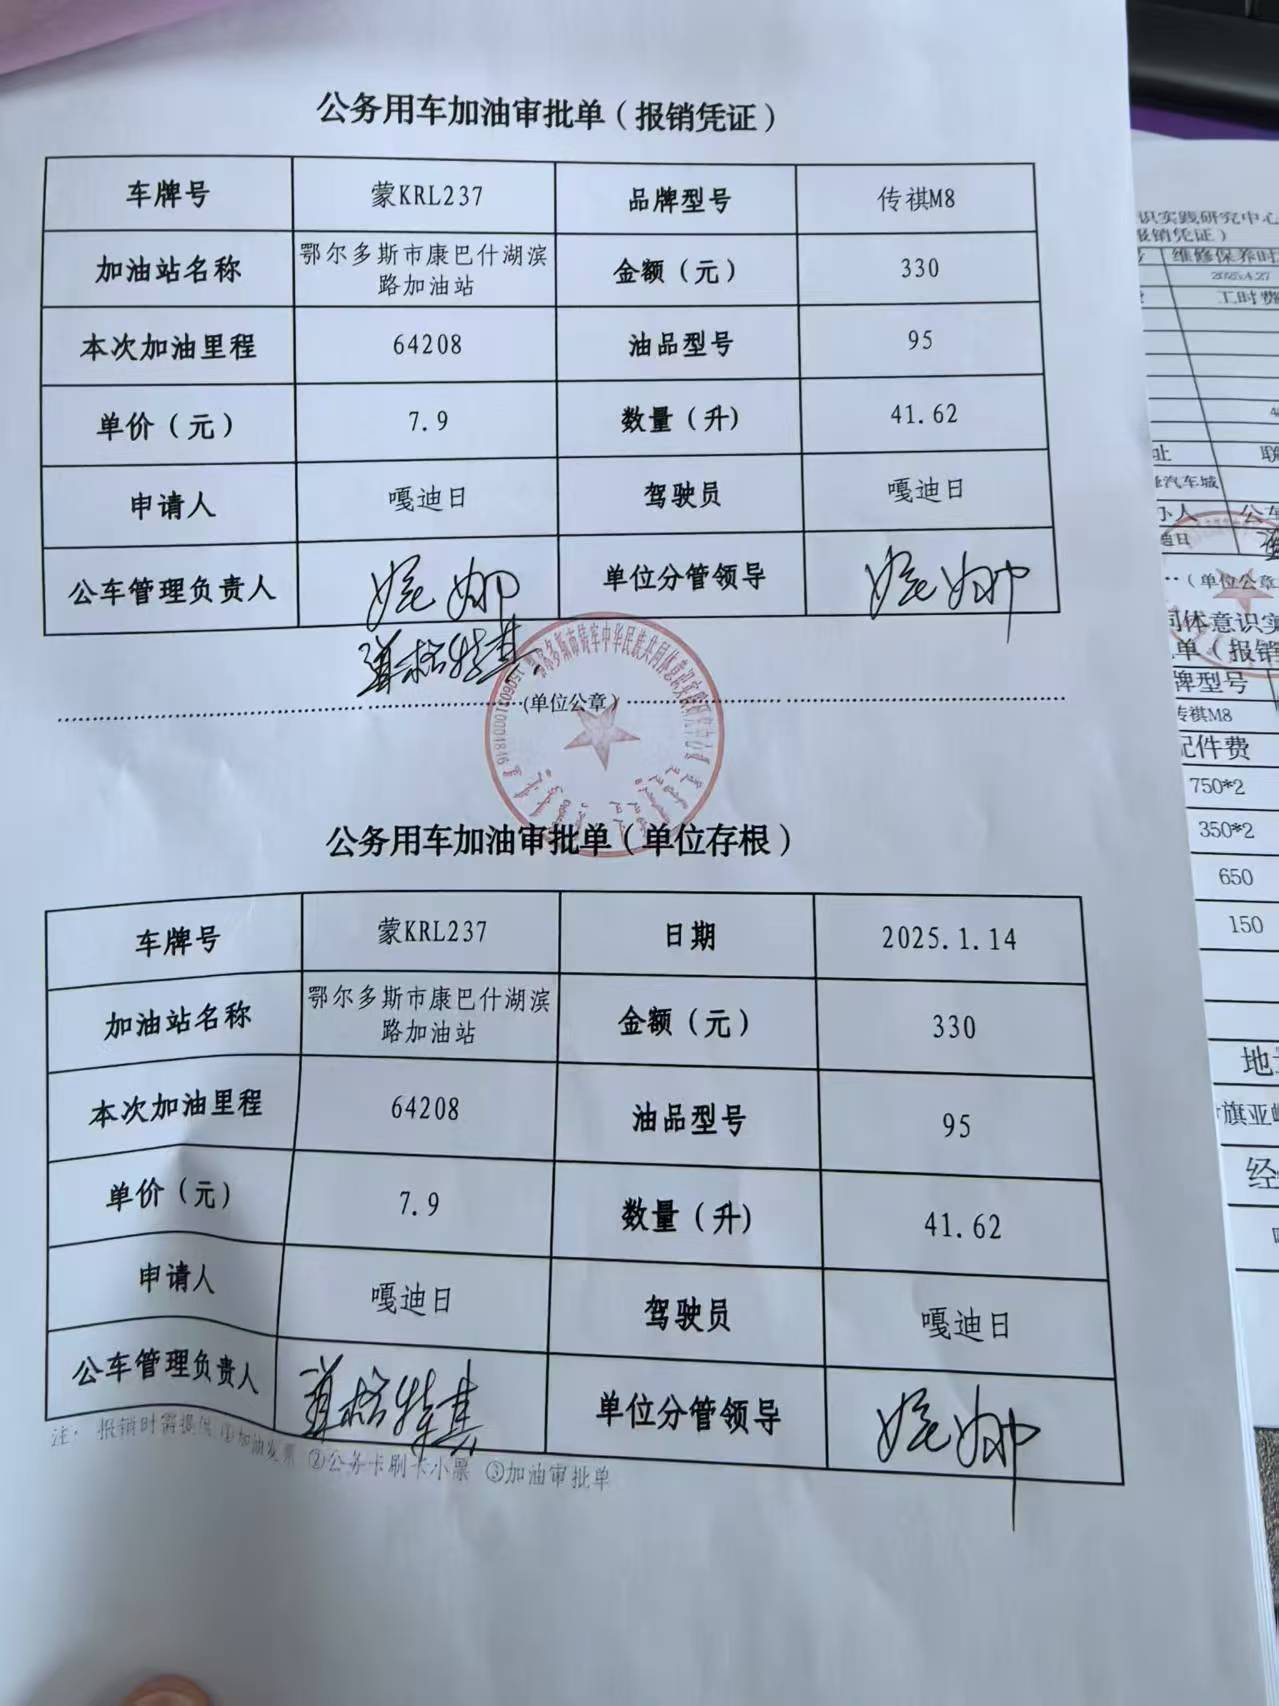 公务用车加油审批单（报销凭证）
车牌号 蒙KRL237 品牌型号 传祺M8
加油站名称 鄂尔多斯市康巴什湖滨路加油站 金额（元） 330
本次加油里程 64208 油品型号 95
单价（元） 7.9 数量（升） 41.62
申请人 嘎迪日 驾驶员 嘎迪日
公车管理负责人 单位分管领导
(单位公章)
鄂尔多斯市铸牢中华民族共同体意识实践研究中心
公务用车加油审批单（单位存根）
车牌号 蒙KRL237 日期 2025.1.14
加油站名称 鄂尔多斯市康巴什湖滨路加油站 金额（元） 330
本次加油里程 64208 油品型号 95
单价（元） 7.9 数量（升） 41.62
申请人 嘎迪日 驾驶员 嘎迪日
公车管理负责人 单位分管领导
注：报销时需提供 ①加油发票 ②公务卡刷卡小票 ③加油审批单
识实践研究中心
报销凭证）
维修保养时
工时费
址 联
汽车城
办人 公车
（单位公章
同体意识实
单（报销
牌型号
传祺M8
配件费
750*2
350*2
650
150
地
旗亚
经